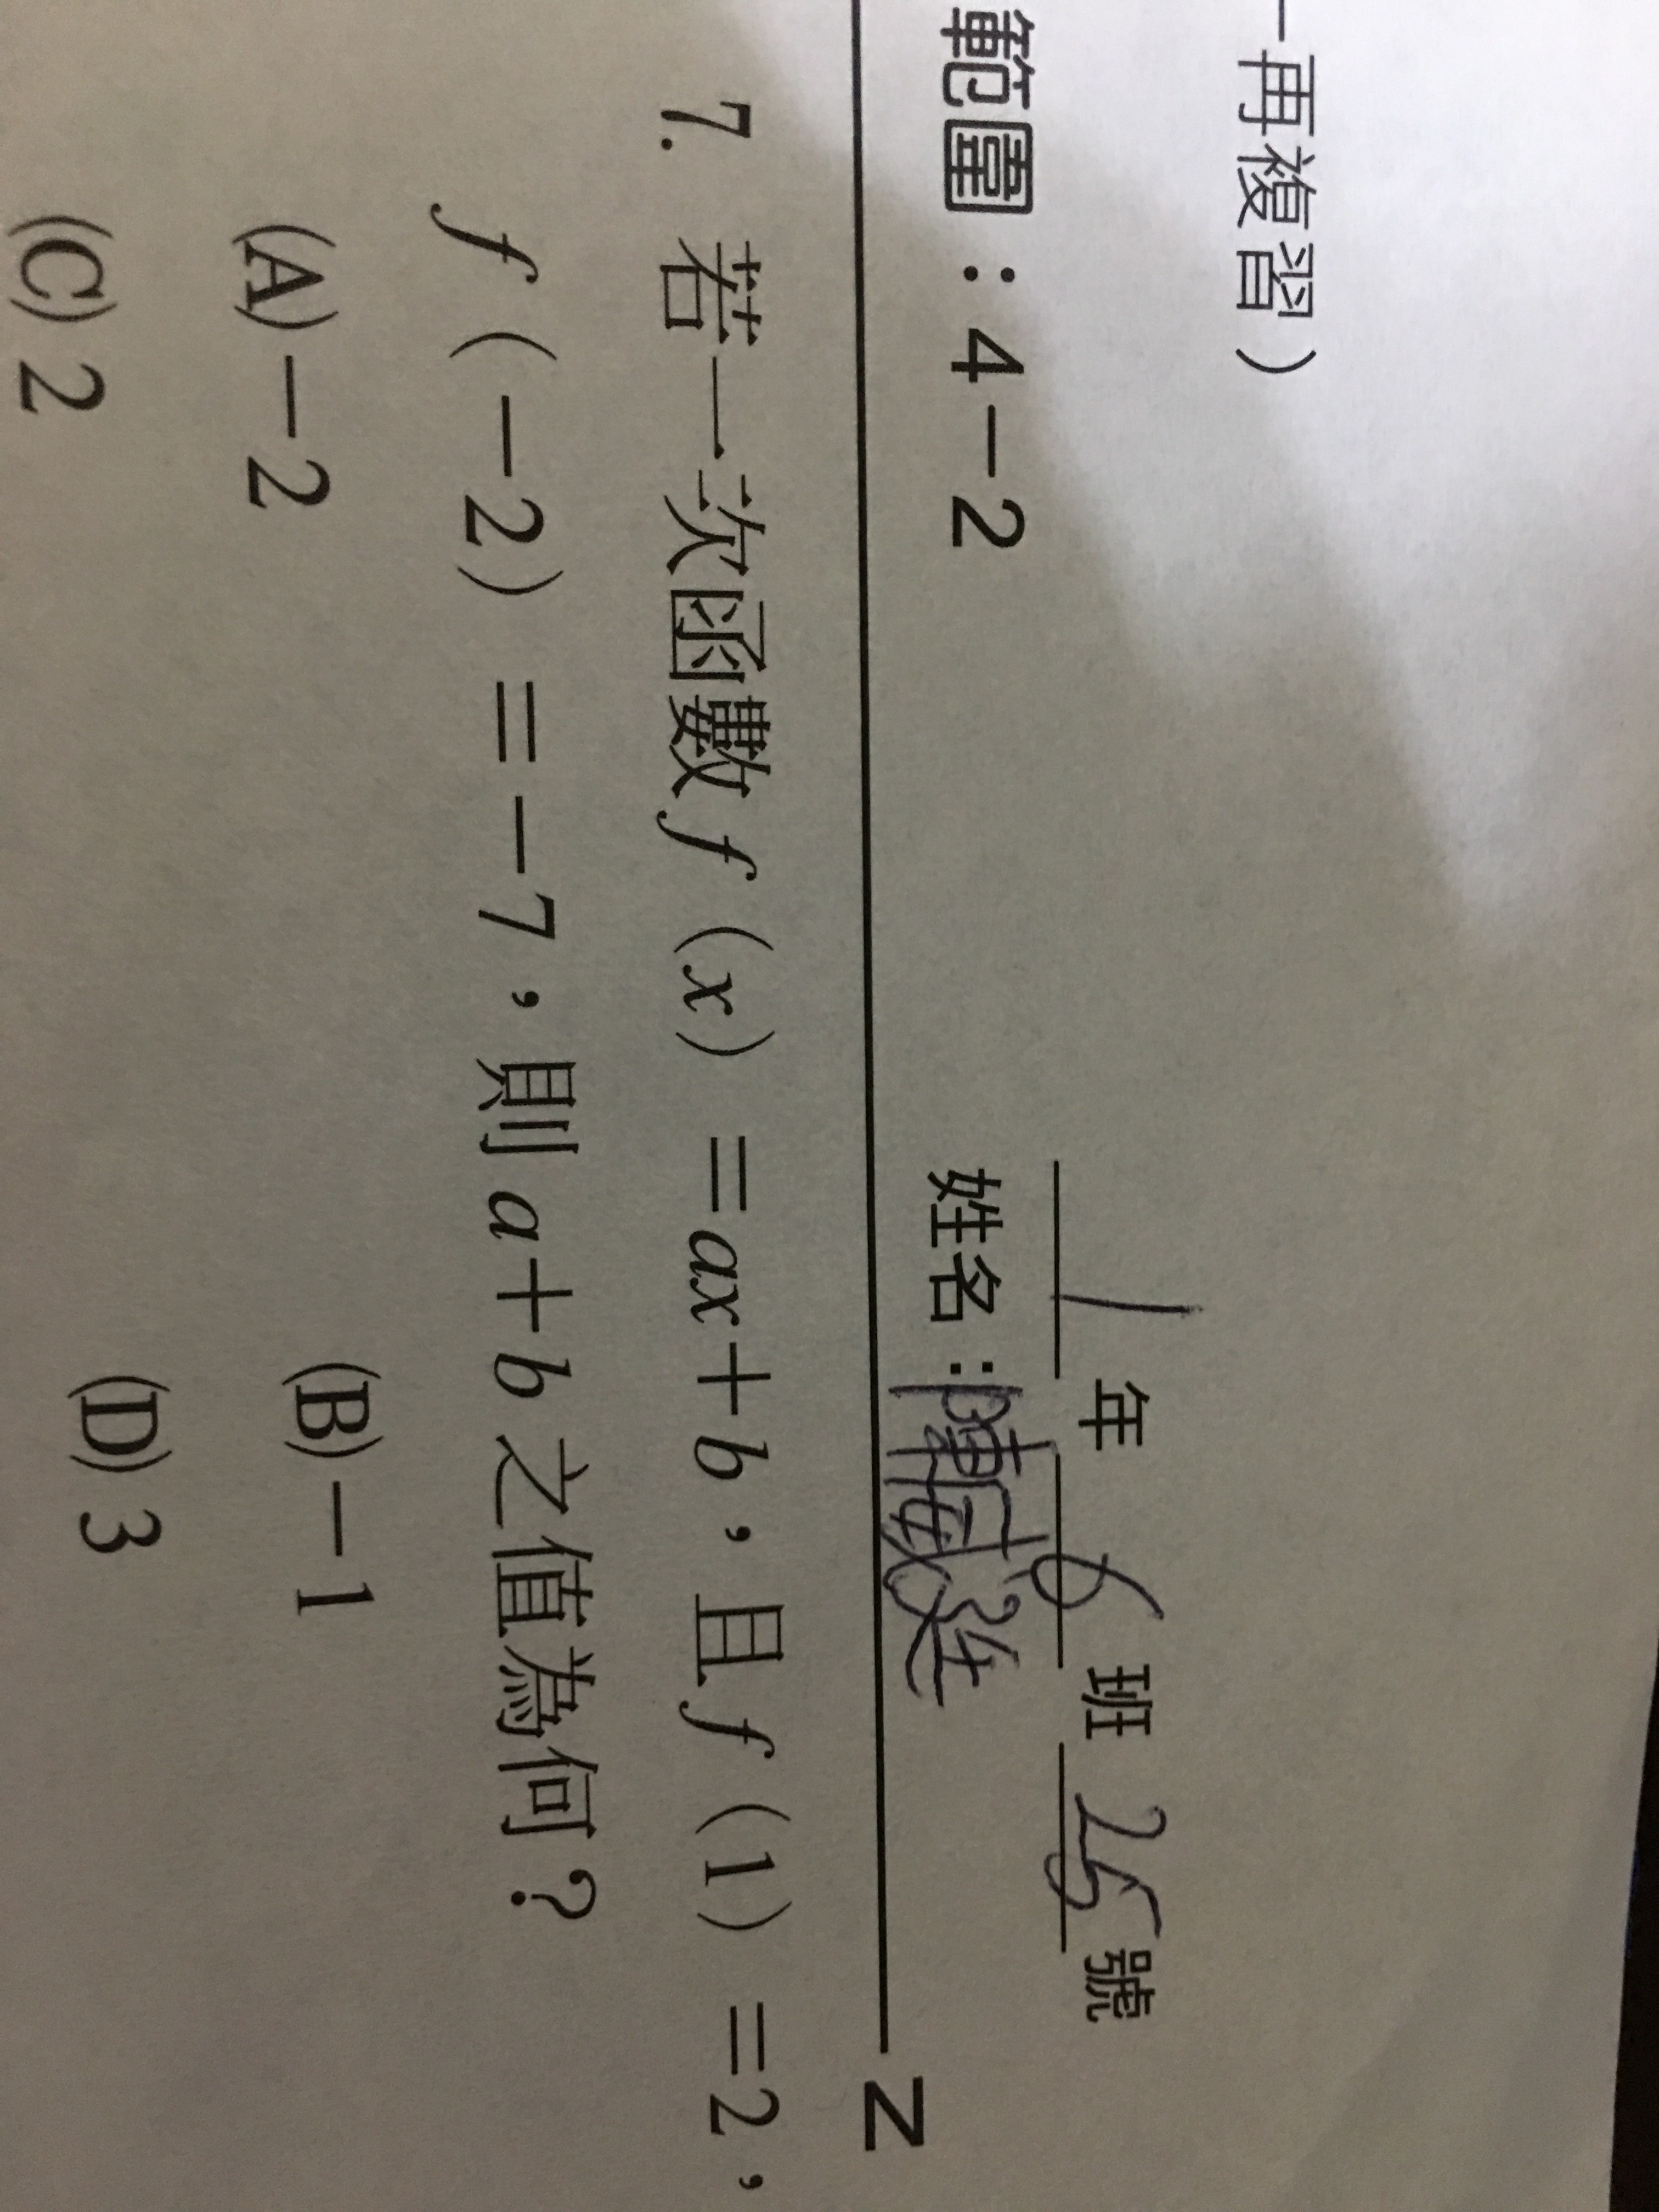 一再複習）
1 年 6 班 25 號
範圍：4－2 姓名：陳
Z
7. 若一次函數 f（x）＝ax＋b，且 f（1）＝2，
f（－2）＝－7，則 a＋b 之值為何？
(A)－2 (B)－1
(C) 2 (D) 3